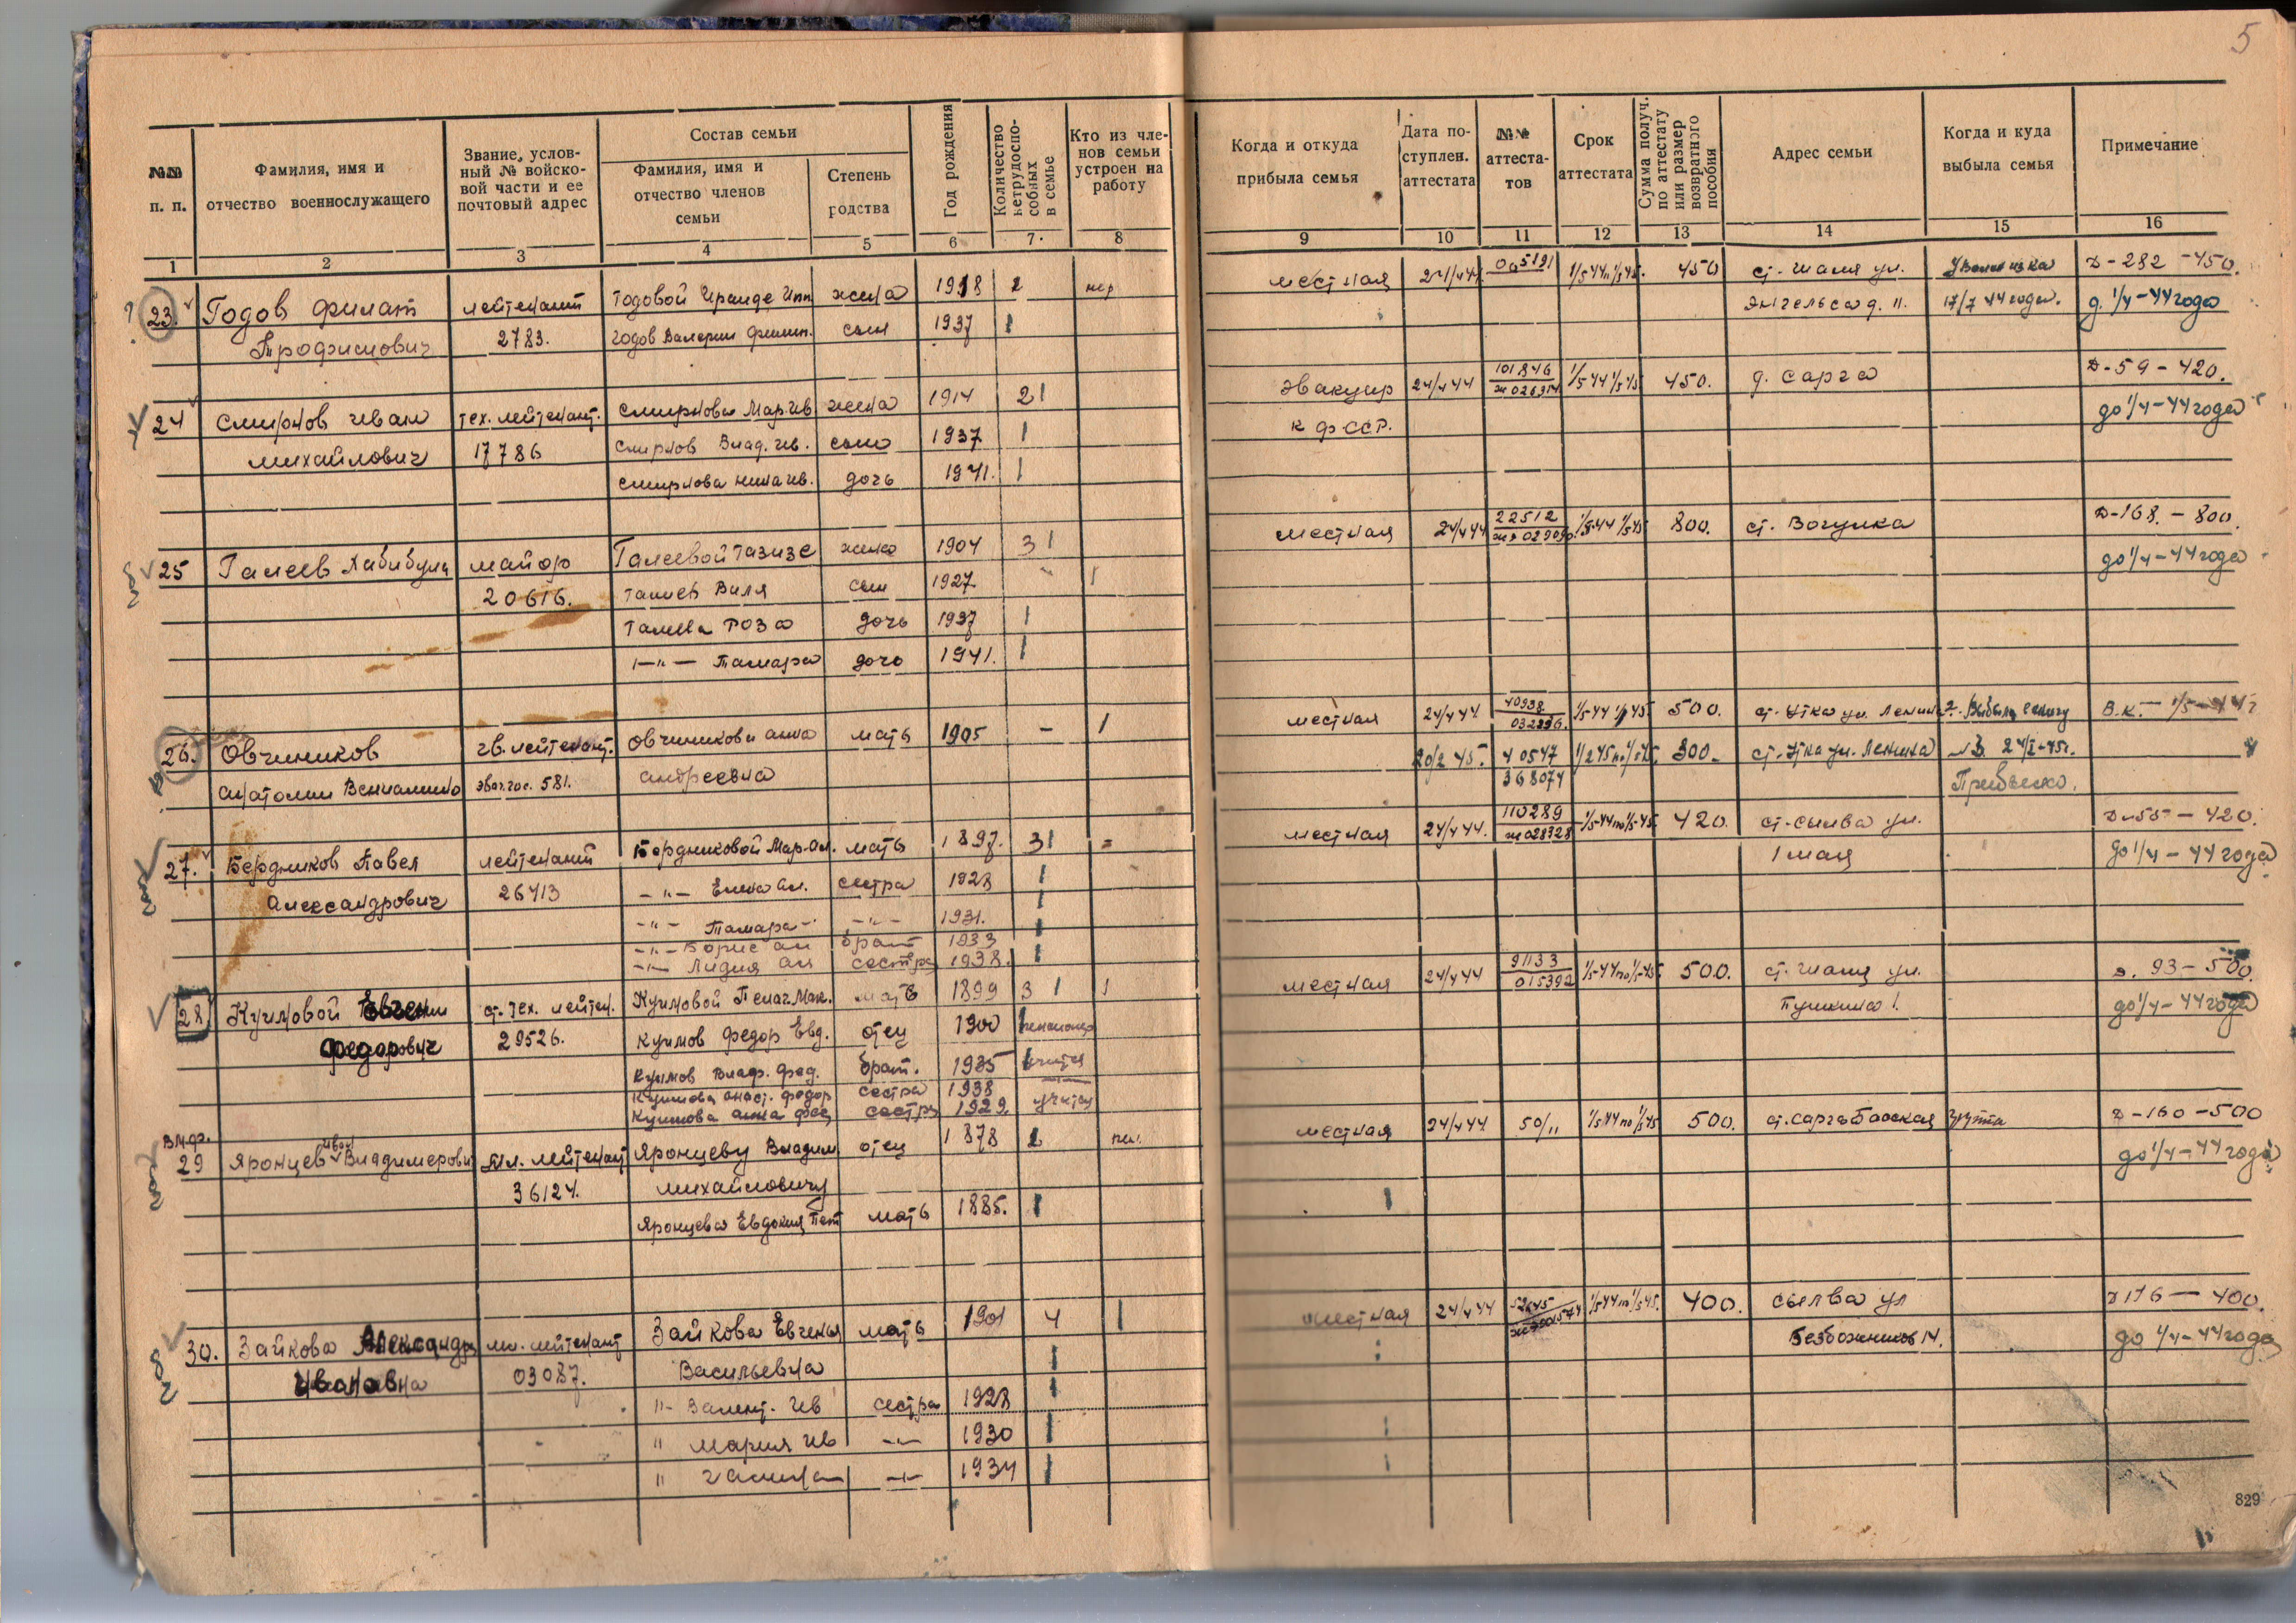 5
№№ п. п.
Фамилия, имя и отчество военнослужащего
Звание, услов-
ный № войско-
вой части и ее
почтовый адрес
Состав семьи
Фамилия, имя и
отчество членов
семьи
Степень
родства
Год рождения
Количество
нетрудоспо-
собных
в семье
Кто из чле-
нов семьи
устроен на
работу
Когда и откуда
прибыла семья
Дата по-
ступлен.
аттестата
№№
аттеста-
тов
Срок
аттестата
Сумма получ.
по аттестату
или размер
возвратного
пособия
Адрес семьи
Когда и куда
выбыла семья
Примечание
1 2 3 4 5 6 7 8 9 10 11 12 13 14 15 16
23. Годов Филат лейтенант Годовой Ираиде Ипп жена 1918 2 местная 24/4 44 005191 450 ст. Шаля ул. Д-282-450.
Трофимович 2783. Годов Валерий сын 1937 1 Энгельса д. 11. 17/7 44 года. д. 1/4-44 года
24 Смирнов Иван тех. лейтенант. Смирнова Мар. Ив жена 1914 2 1 эвакуир 24/4 44 101846 1/5 44 1/5 45 450. д. Сарга Д-59-420.
Михайлович 17786 Смирнов Влад. Ив. сын 1937 1 К ф ССР. до 1/4-44 года
Смирнова Нина Ив. дочь 1941. 1
25 Галеев Хабибула майор Галеевой Газизе жена 1904 3 1 местная 24/4 44 22512 1/5 44 1/5 45 800. ст. Вогулка Д-168.-800.
20616. Галиев Виля сын 1927 1 до 1/4-44 года
Галеева Роза дочь 1937 1
-"- Тамара дочь 1941. 1
26. Овчинников гв. лейтенант. Овчинникови Анна мать 1905 - 1 местная 24/4 44 40938 1/5-44 1/5 45 500. ст. Утка ул. Ленина 2. В.К.
Анатолий Вениамино эвак. гос. 581. Андреевна 20/2 45. 40547 300. ст. Утка ул. Ленина
368074
27. Бердников Павел лейтенант Бердниковой Мар. Ал. мать 1897. 3 1 местная 24/4 44. 110289 1/5-44 по 1/5-45 420. ст. Сылва ул. Д-55-420.
Александрович 26413 -"- Елена Ал. сестра 1928 1 1 мая до 1/4-44 года
-"- Тамара -"- 1931. 1
-"- Борис Ал брат 1933
-"- Лидия Ал сестра 1938. 1
28 Куимовой Евгений ст. тех. лейтен. Куимовой Пелаг. Мак. мать 1899 3 1 1 местная 24/4 44 91133 1/5-44 по 1/5-45 500. ст. Шаля ул. Д. 93-500
Федорович 29526. Куимов Федор Евд. отец 1900 пенсионер 015392 Пушкина 1. до 1/4-44 года
Куимов Влад. Фед. брат. 1935 учится
Куимова Анаст. Федор сестра 1938
Куимова Анна Фед сестра 1929. учится
29 Яронцев Иван Владимерови мл. лейтенант Яронцеву Владим. отец 1878 2 местная 24/4 44 50/11 1/5 44 по 1/5 45 500. ст. Сарга Бооская группа Д-160-500
36124. Михайловичу до 1/4-44 года
Яронцева Евдокия Пет мать 1885. 1
30. Зайкова Александра мл. лейтенант Зайкова Евгенья мать 1901 4 1 местная 24/4 44 52645 1/5-44 по 1/5 45. 400. Сылва ул Д 176-400.
Ивановна 03087. Васильевна Безбожников 14. до 1/4-44 года
"- Валент. Ив сестра 1928 1
" Мария Ив -"- 1930 1
" Галина -"- 1934 1
829